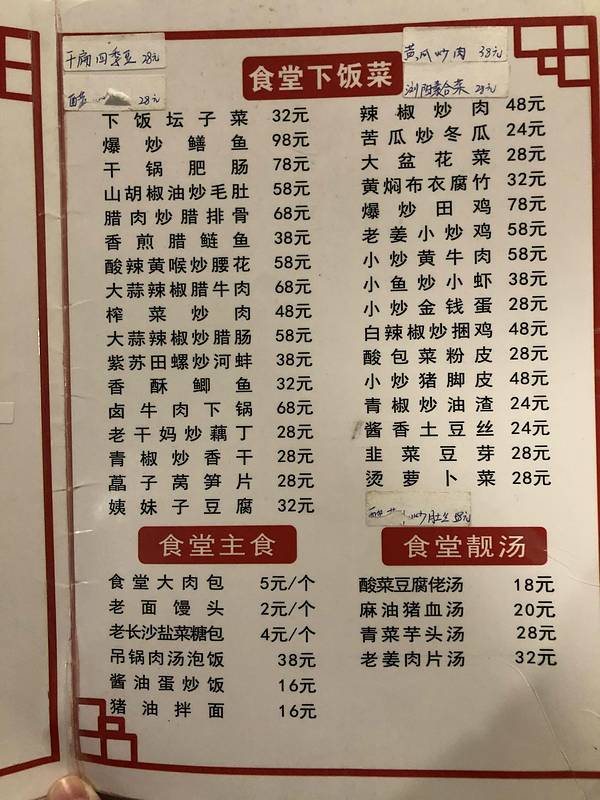 干煸四季豆 28元
28元
黄瓜炒肉 38元
浏阳聚合菜 28元
食堂下饭菜
下饭坛子菜 32元
爆炒鳝鱼 98元
干锅肥肠 78元
山胡椒油炒毛肚 58元
腊肉炒腊排骨 68元
香煎腊鲢鱼 38元
酸辣黄喉炒腰花 58元
大蒜辣椒腊牛肉 68元
榨菜炒肉 48元
大蒜辣椒炒腊肠 58元
紫苏田螺炒河蚌 38元
香酥鲫鱼 32元
卤牛肉下锅 68元
老干妈炒藕丁 28元
青椒炒香干 28元
藠子莴笋片 28元
姨妹子豆腐 32元
辣椒炒肉 48元
苦瓜炒冬瓜 24元
大盆花菜 28元
黄焖布衣腐竹 32元
爆炒田鸡 78元
老姜小炒鸡 58元
小炒黄牛肉 58元
小鱼炒小虾 38元
小炒金钱蛋 28元
白辣椒炒捆鸡 48元
酸包菜粉皮 28元
小炒猪脚皮 48元
青椒炒油渣 24元
酱香土豆丝 24元
韭菜豆芽 28元
烫萝卜菜 28元
炒肚丝 58元
食堂主食
食堂大肉包 5元/个
老面馒头 2元/个
老长沙盐菜糖包 4元/个
吊锅肉汤泡饭 38元
酱油蛋炒饭 16元
猪油拌面 16元
食堂靓汤
酸菜豆腐佬汤 18元
麻油猪血汤 20元
青菜芋头汤 28元
老姜肉片汤 32元